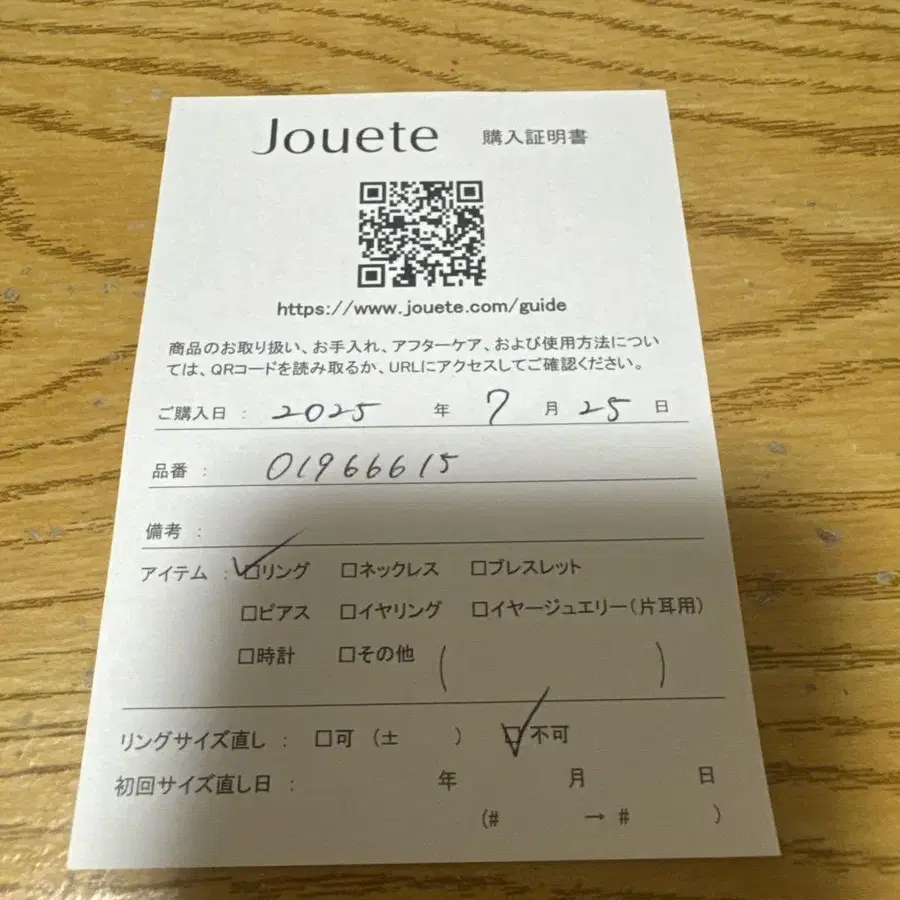 Jouete 購入証明書
https://www.jouete.com/guide
商品のお取り扱い、お手入れ、アフターケア、および使用方法につい
ては、QRコードを読み取るか、URLにアクセスしてご確認ください。
ご購入日 : 2025 年 7 月 25 日
品番 : 01966615
備考 :
アイテム : ☑リング □ネックレス □ブレスレット
□ピアス □イヤリング □イヤージュエリー(片耳用)
□時計 □その他 ( )
リングサイズ直し : □可 (± ) ☑不可
初回サイズ直し日 : 年 月 日
(# → # )